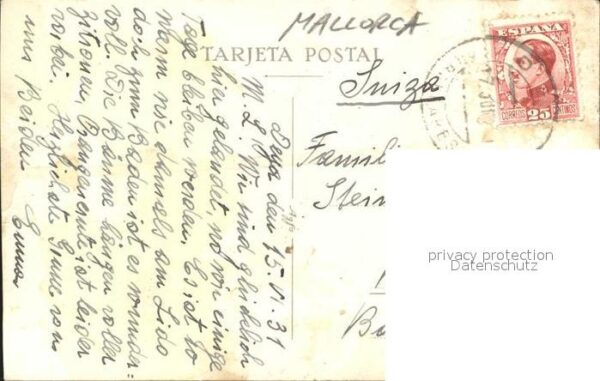 MALLORCA
TARJETA POSTAL
ESPAÑA
CORREOS 25 CENTIMOS
Suiza
Famili
Stei
Deya den 15. VI. 31
M. L. Wir sind glücklich
hier gelandet, wo wir einige
Tage bleiben werden. Es ist so
warm wie damals am Lido
doch zum Baden ist es wunder=
voll. Die Bäume hangen voller
Zitronen, Orangenzeit ist leider
vorbei. Herzlichste Grüsse von
uns Beiden
Emma
privacy protection
Datenschutz